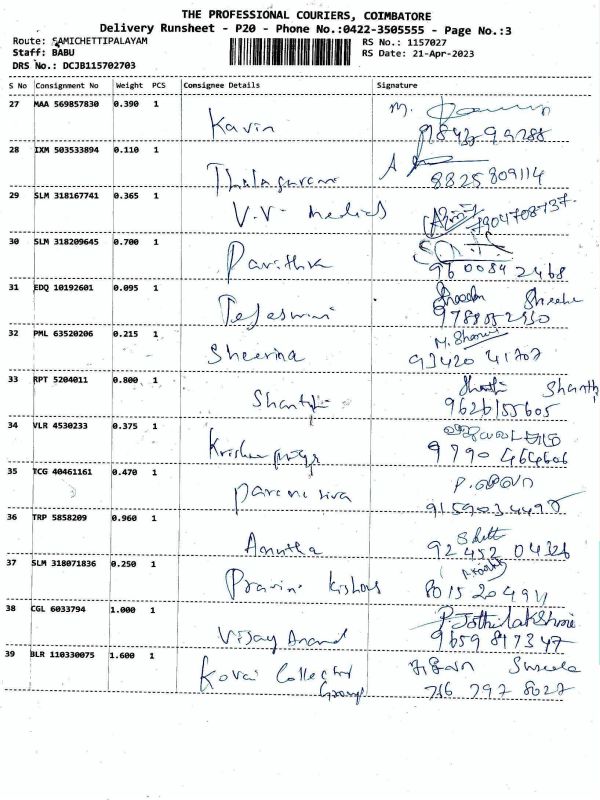 THE PROFESSIONAL COURIERS, COIMBATORE
Delivery Runsheet - P20 - Phone No.:0422-3505555 - Page No.:3
Route: SAMICHETTIPALAYAM RS No.: 1157027
Staff: BABU RS Date: 21-Apr-2023
DRS No.: DCJB115702703
S No Consignment No Weight PCS Consignee Details Signature
27 MAA 569857830 0.390 1
Kavin
28 IXM 503533894 0.110 1
8825809114
29 SLM 318167741 0.365 1
V.V. medicals 7904708737
30 SLM 318209645 0.700 1
Pavithra 9600842468
31 EDQ 10192601 0.095 1
Tejaswini
32 PML 63520206 0.215 1
Sheerina 93420 41707
33 RPT 5204011 0.800 1 Shanthi
Shanthi 9626155605
34 VLR 4530233 0.375 1
Krishnapriya 9790 464606
35 TCG 40461161 0.470 1
36 TRP 5858209 0.960 1
Anutha 92452 04326
37 SLM 318071836 0.250 1
Pravin Kishore 8015204941
38 CGL 6033794 1.000 1 P. Jothilakshmi
Vijay Anand 9659817347
39 BLR 110330075 1.600 1
Kovai Collected
Group 716 797 8027